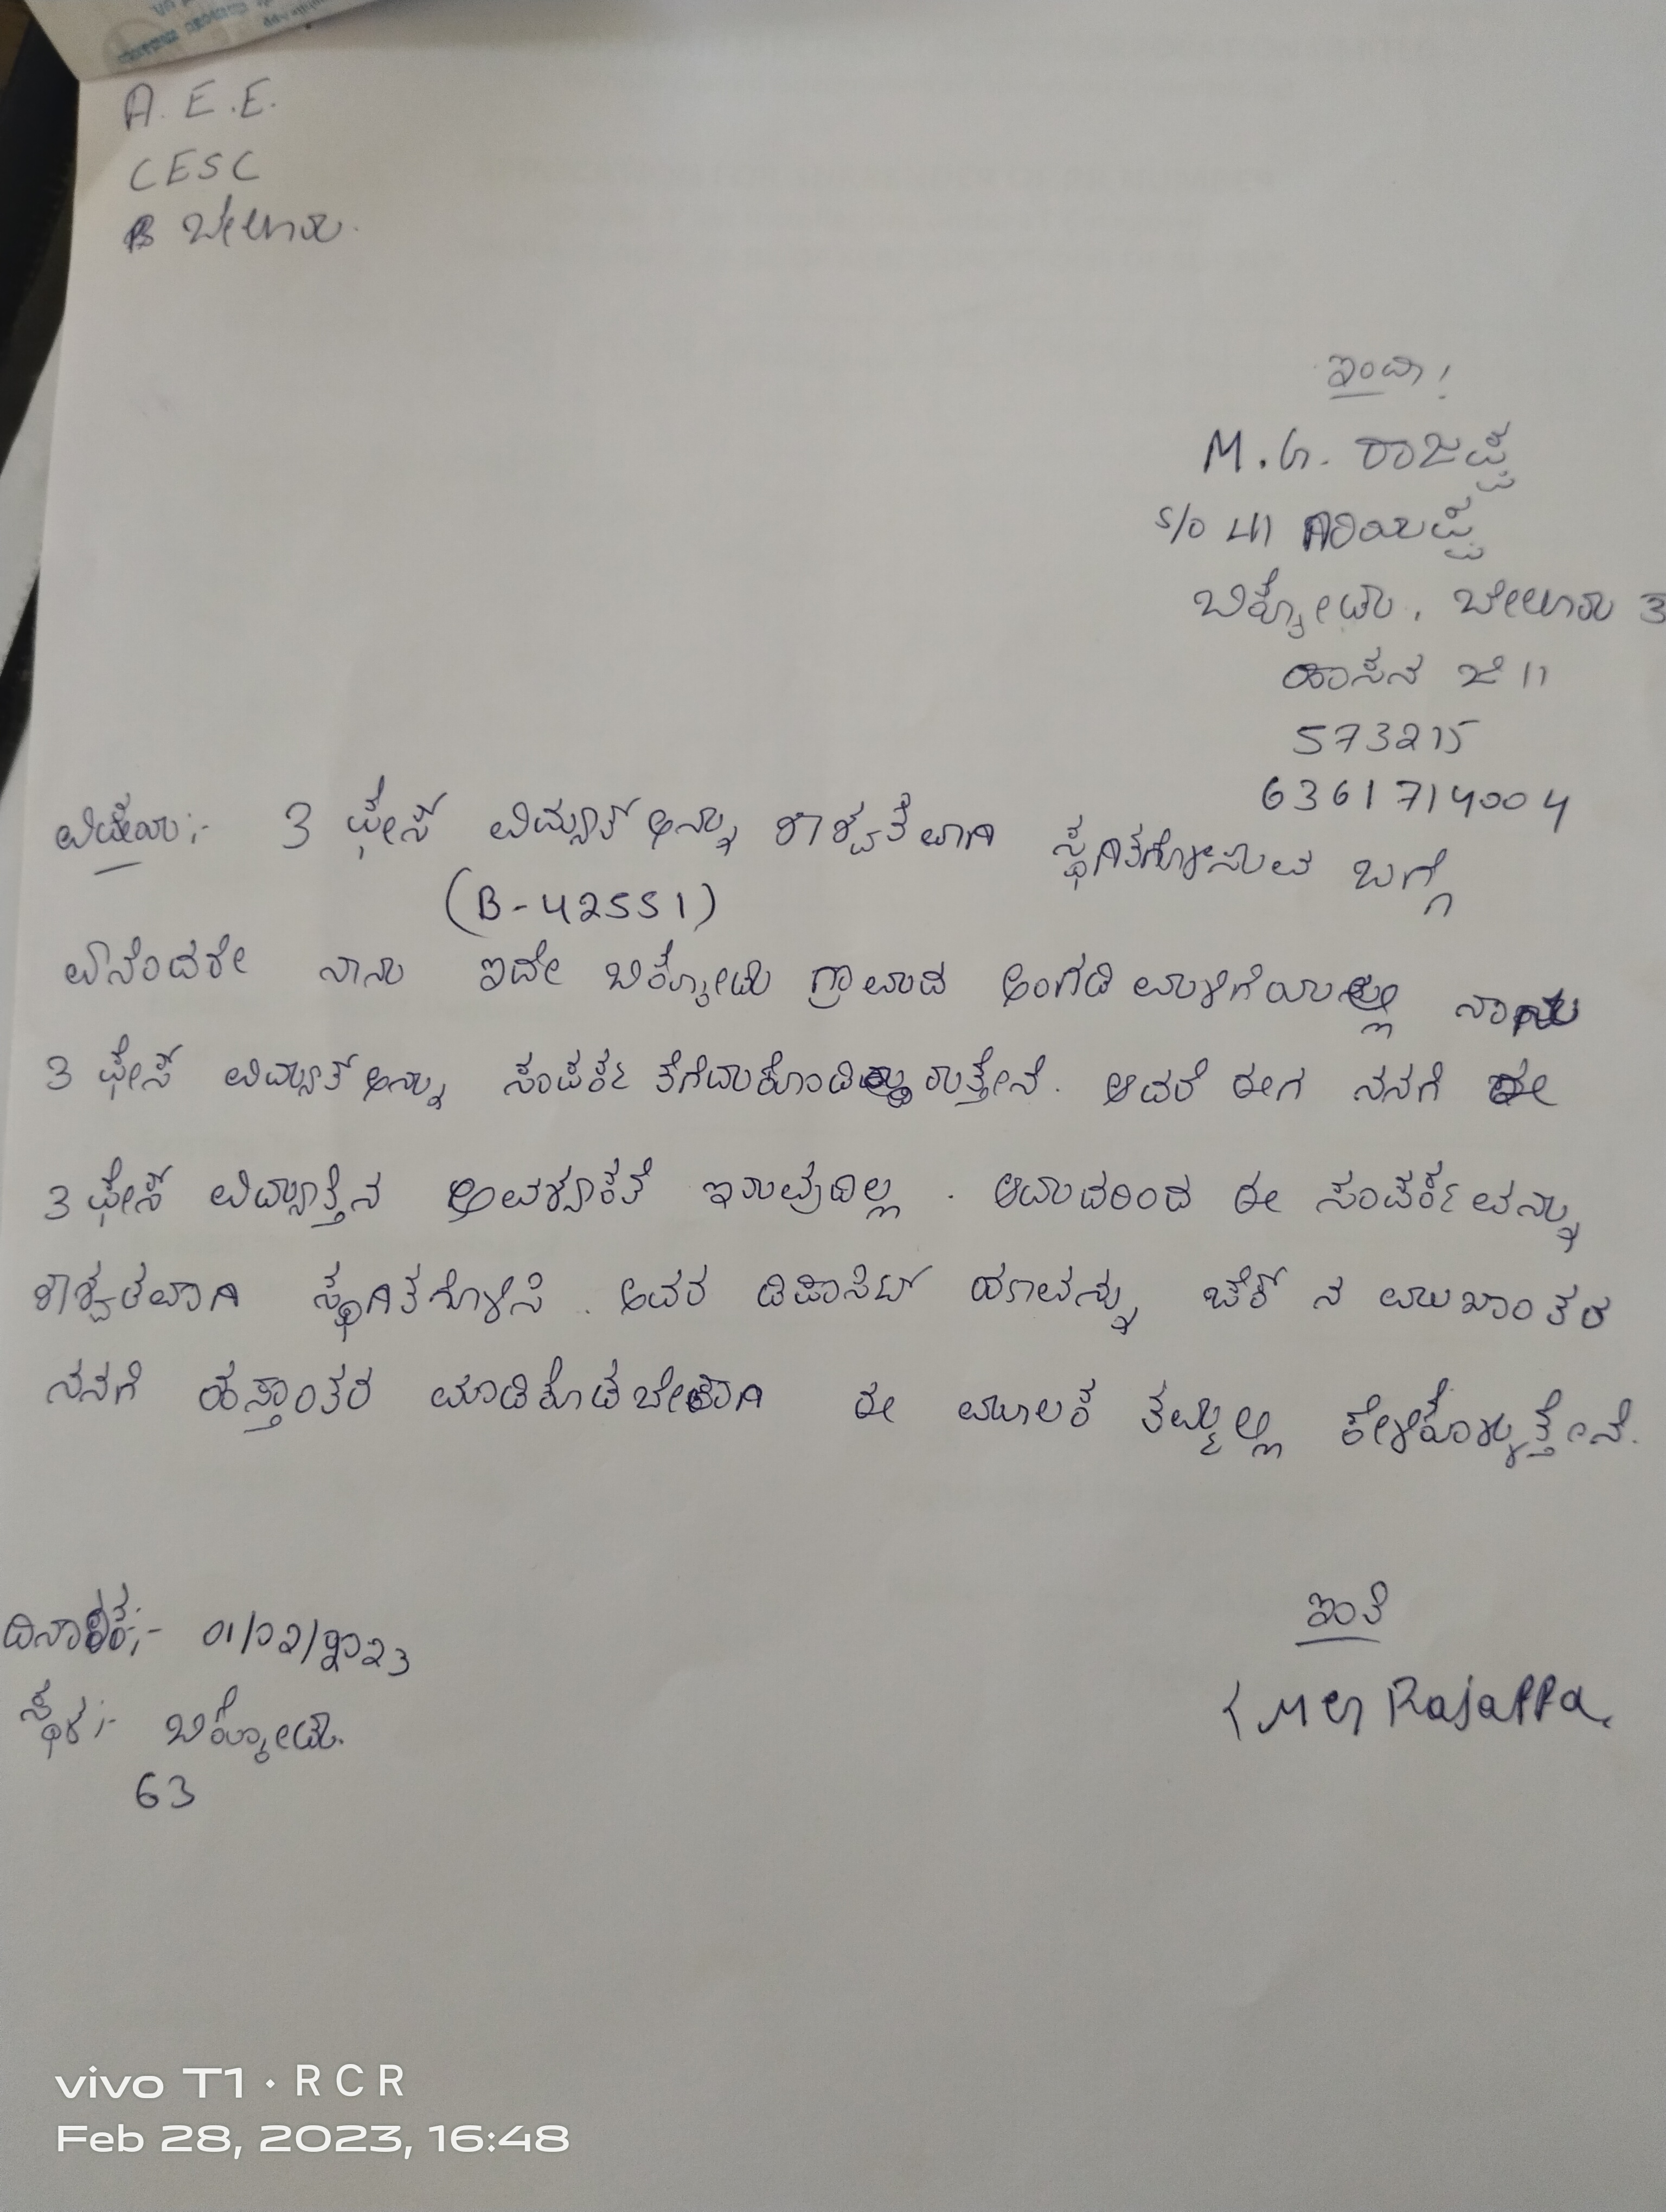 A. E. E.
CESC
ಬೇಲೂರು.
ಇಂದಾ!
M. G. ರಾಜಪ್ಪ
S/o ಲೇ|| ಗಿರಿಯಪ್ಪ
ಬಿಕ್ಕೋಡು, ಬೇಲೂರು
ಹಾಸನ ಜಿ ||
573215
6361714004
ವಿಷಯ:- 3 ಫೇಸ್ ವಿದ್ಯುತ್ ಅನ್ನು ಶಾಶ್ವತವಾಗಿ ಸ್ಥಗಿತಗೊಳಿಸುವ ಬಗ್ಗೆ
(B-42551)
ಏನೆಂದರೇ ನಾನು ಇದೇ ಬಿಕ್ಕೋಡು ಗ್ರಾಮದ ಅಂಗಡಿ ಮಳಿಗೆಯಲ್ಲಿ ನಾನು
3 ಫೇಸ್ ವಿದ್ಯುತ್ ಅನ್ನು ಸಂಪರ್ಕ ತೆಗೆದುಕೊಂಡಿರುತ್ತೇನೆ. ಆದರೆ ಈಗ ನನಗೆ ಈ
3 ಫೇಸ್ ವಿದ್ಯುತ್ತಿನ ಅವಶ್ಯಕತೆ ಇರುವುದಿಲ್ಲ. ಆದುದರಿಂದ ಈ ಸಂಪರ್ಕವನ್ನು
ಶಾಶ್ವತವಾಗಿ ಸ್ಥಗಿತಗೊಳಿಸಿ. ಅದರ ಡಿಪಾಸಿಟ್ ಹಣವನ್ನು ಚೆಕ್ ನ ಮುಖಾಂತರ
ನನಗೆ ಹಸ್ತಾಂತರ ಮಾಡಿಕೊಡಬೇಕಾಗಿ ಈ ಮೂಲಕ ತಮ್ಮಲ್ಲಿ ಕೇಳಿಕೊಳ್ಳುತ್ತೇನೆ.
ಇಂತಿ
ದಿನಾಂಕ:- 01/02/2023
M G Rajappa
ಸ್ಥಳ:- ಬಿಕ್ಕೋಡು.
63
vivo T1 · R C R
Feb 28, 2023, 16:48